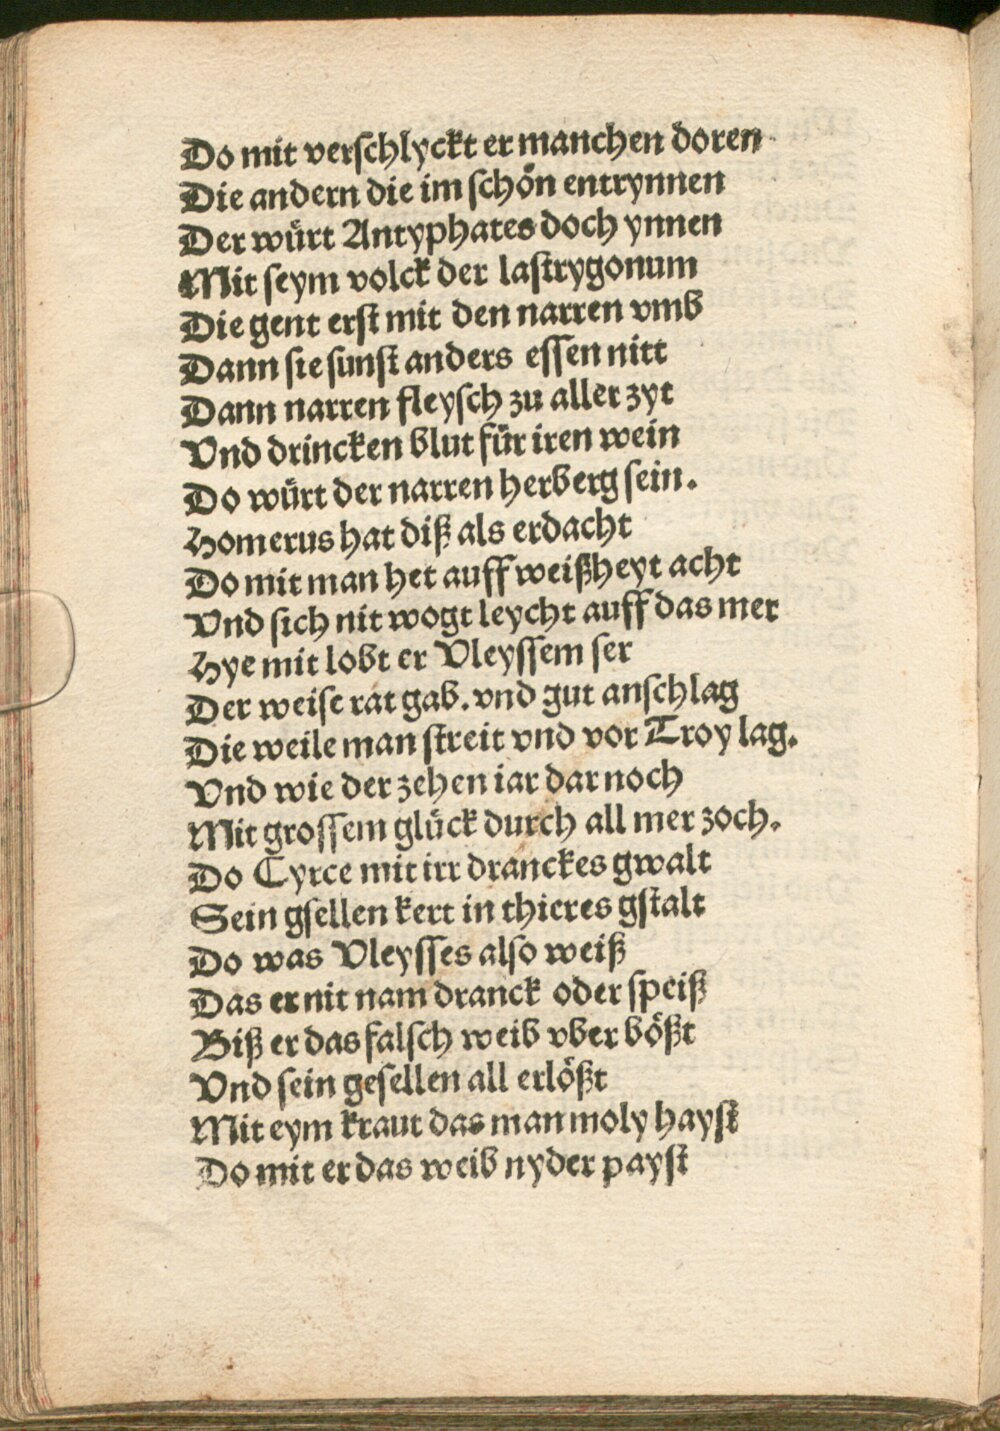 Do mit verschlyckt er manchen doren
Die andern die im schön entrynnen
Der würt Antyphates doch ynnen
Mit seym volck der lastrygonum
Die gent erst mit den narren vmb
Dann sie sunst anders essen nitt
Dann narren fleysch zu aller zyt
Vnd drincken blut für iren wein
Do würt der narren herberg sein.
Homerus hat diß als erdacht
Do mit man het auff weißheyt acht
Vnd sich nit wogt leycht auff das mer
Hye mit lobt er Vleyssem ser
Der weise rat gab. vnd gut anschlag
Die weile man streit vnd vor Troy lag.
Vnd wie der zehen iar dar noch
Mit grossem glück durch all mer zoch.
Do Cyrce mit irr dranckes gwalt
Sein gsellen kert in thieres gstalt
Do was Vleysses also weiß
Das er nit nam dranck oder speiß
Biß er das falsch weib vber bößt
Vnd sein gesellen all erlößt
Mit eym kraut das man moly hayst
Do mit er das weib nyder payst